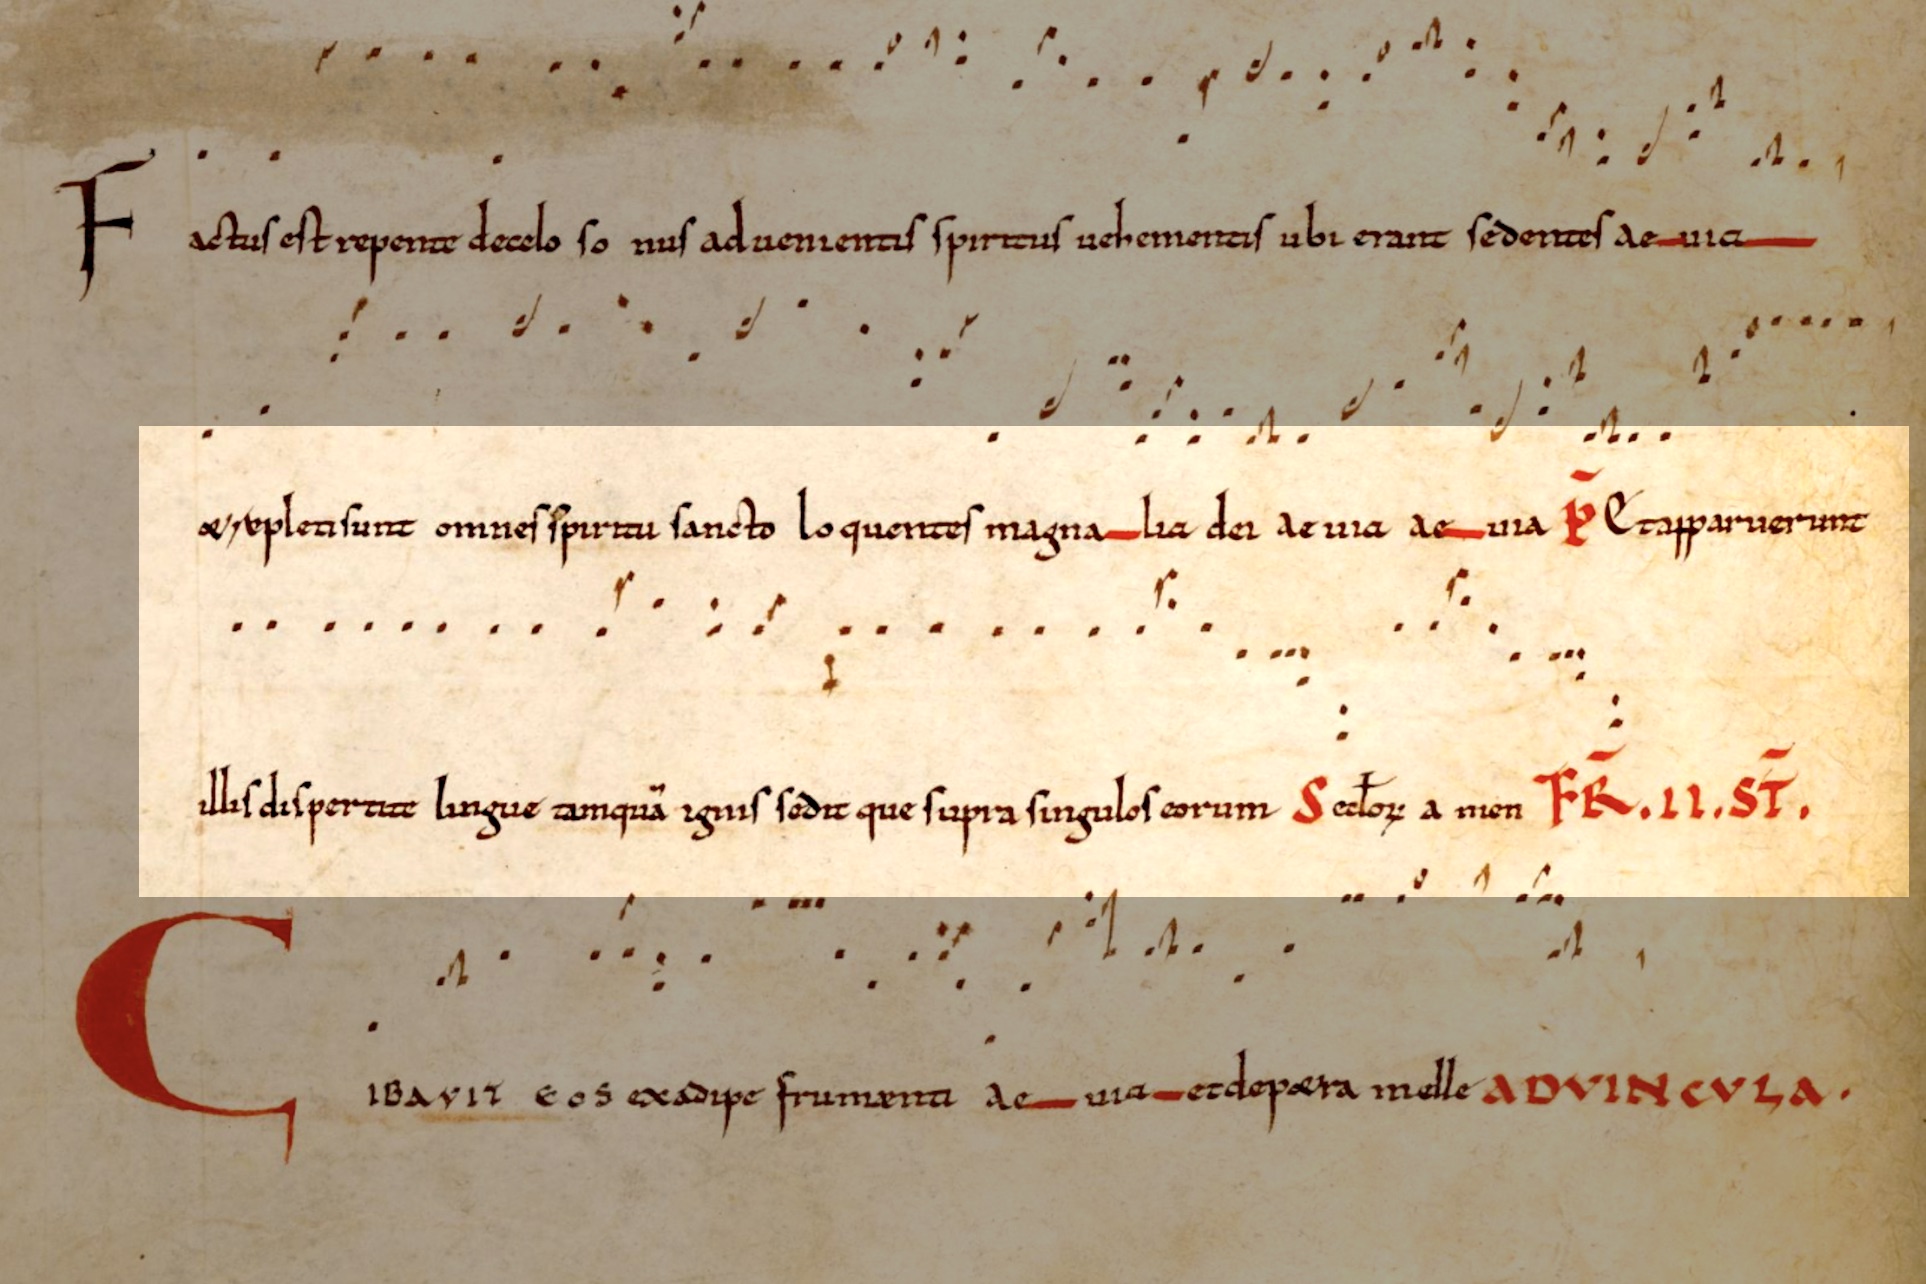 Factus est repente de celo sonus advenientis spiritus vehementis ubi erant sedentes aeuia
et repleti sunt omnes spiritu sancto loquentes magnalia dei aeuia aeuia P̄ Et apparuerunt
illis dispertite lingue tamquā ignis seditque supra singulos eorum Secłoꝝ amen FR̄.II.ST̄.
CIBAVIT EOS ex adipe frumenti Aeuia et de petra melle AD VINCVLA.